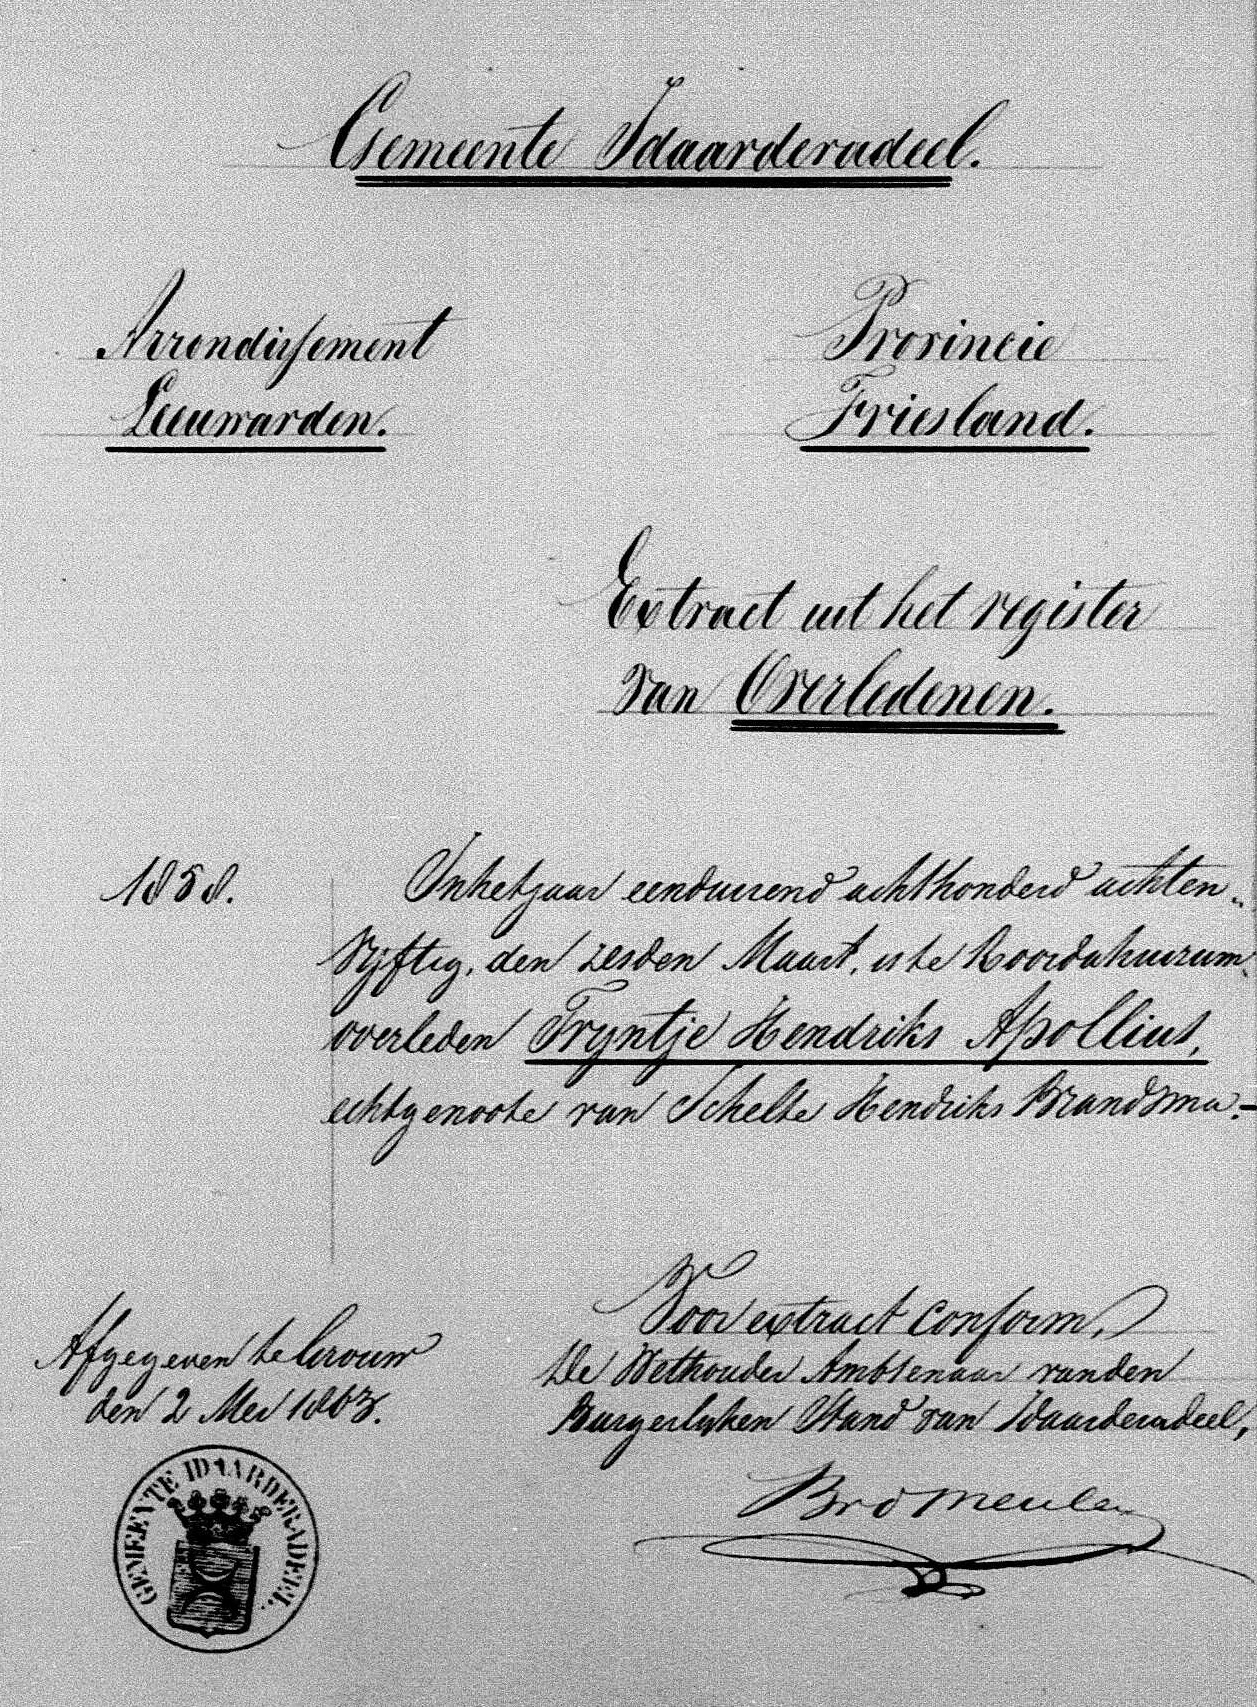 Gemeente Idaarderadeel.
Arrondissement
Leeuwarden.
Provincie
Friesland.
Extract uit het register
van Overledenen.
1858.
In het jaar eenduizend achthonderd achten„
vijftig, den zesden Maart, is te Roordahuizum
overleden Trijntje Hendriks Apollius,
echtgenoote van Schelte Hendriks Brandsma.—
Voor extract conform,
De Wethouder Ambtenaar van den
Burgerlijken Stand van Idaarderadeel,
Afgegeven te Grouw
den 2 Mei 1863.
GEMEENTE IDAARDERADEEL.